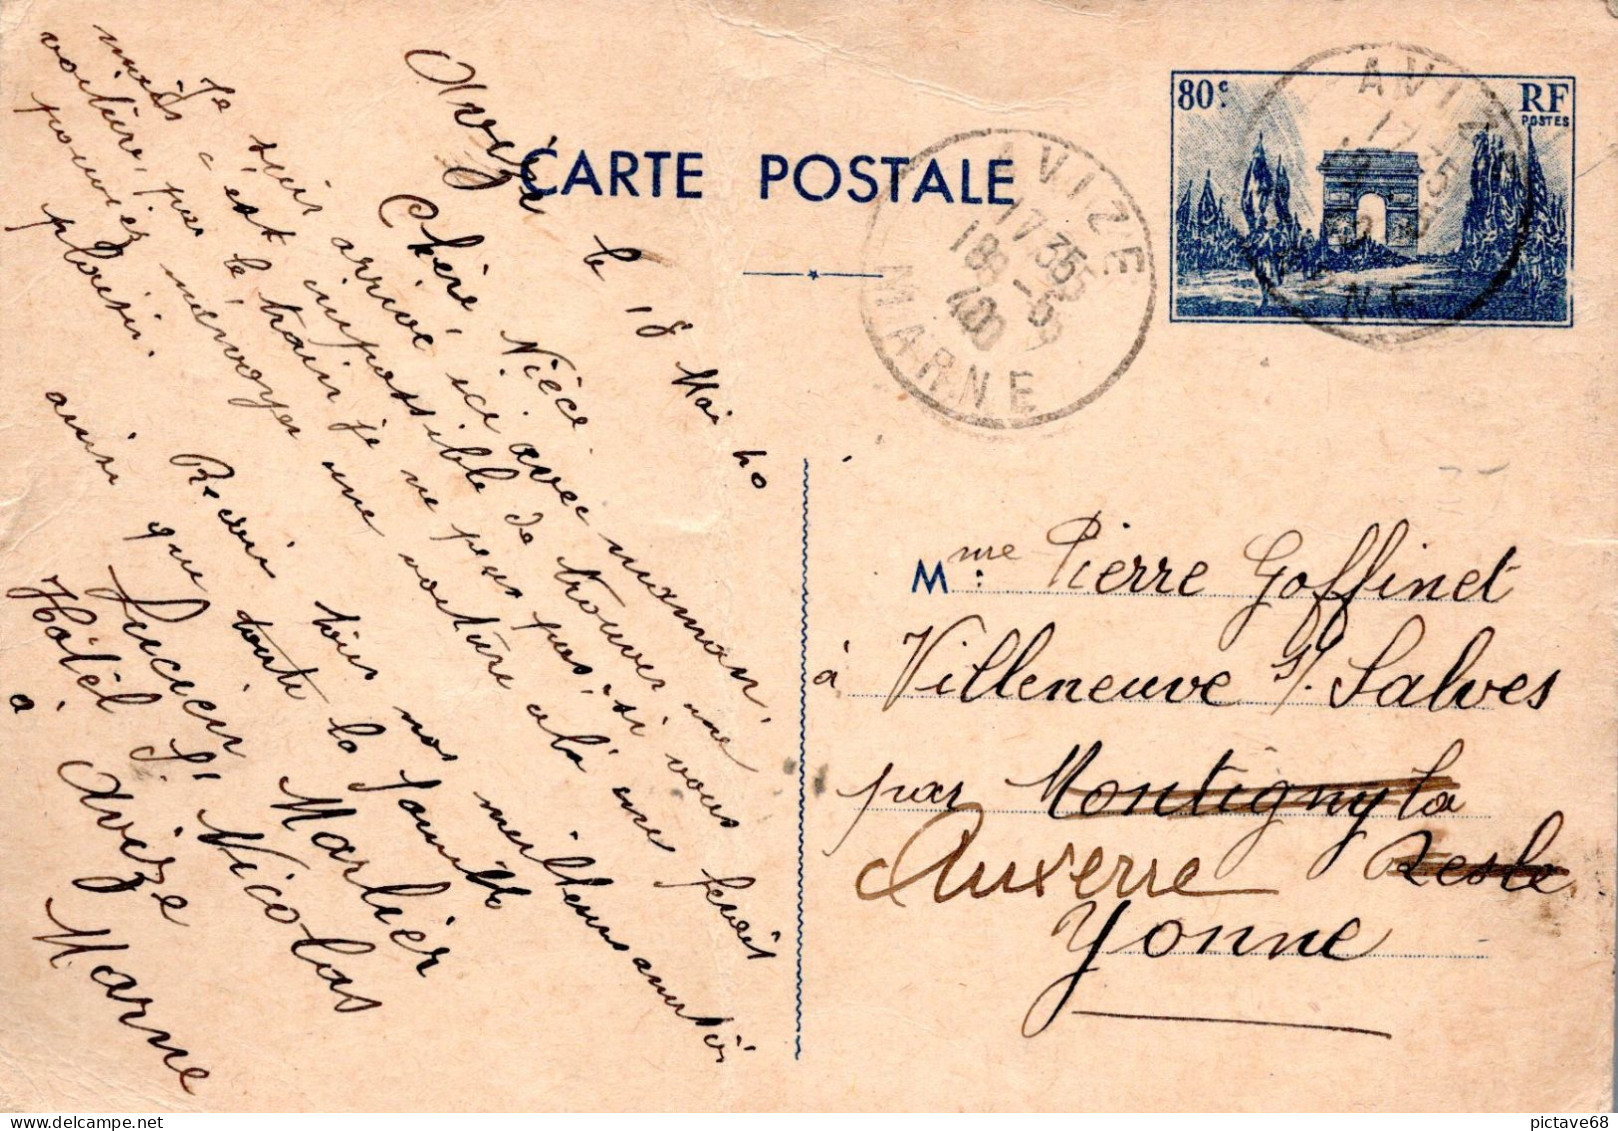 CARTE POSTALE
80c.
RF
POSTES
AVIZE
17 35
18 -5
40
MARNE
AVIZE
17 35
MARNE
Avize le 18 Mai 40
Chère Nièce.
Je suis arrivé ici avec maman,
mais c'est impossible de trouver une
voiture, par le train je ne peux pas, si vous
pouviez m'envoyer une voiture cela me ferait
plaisir.
Reçois tous nos meilleurs amitiés
ainsi que toute la famille
Lucien Marlier
Hôtel St Nicolas
à Avize
Marne
Mme Pierre Goffinet
à Villeneuve S/. Salves
par Montigny la
Auxerre Resle
Yonne
pictave68